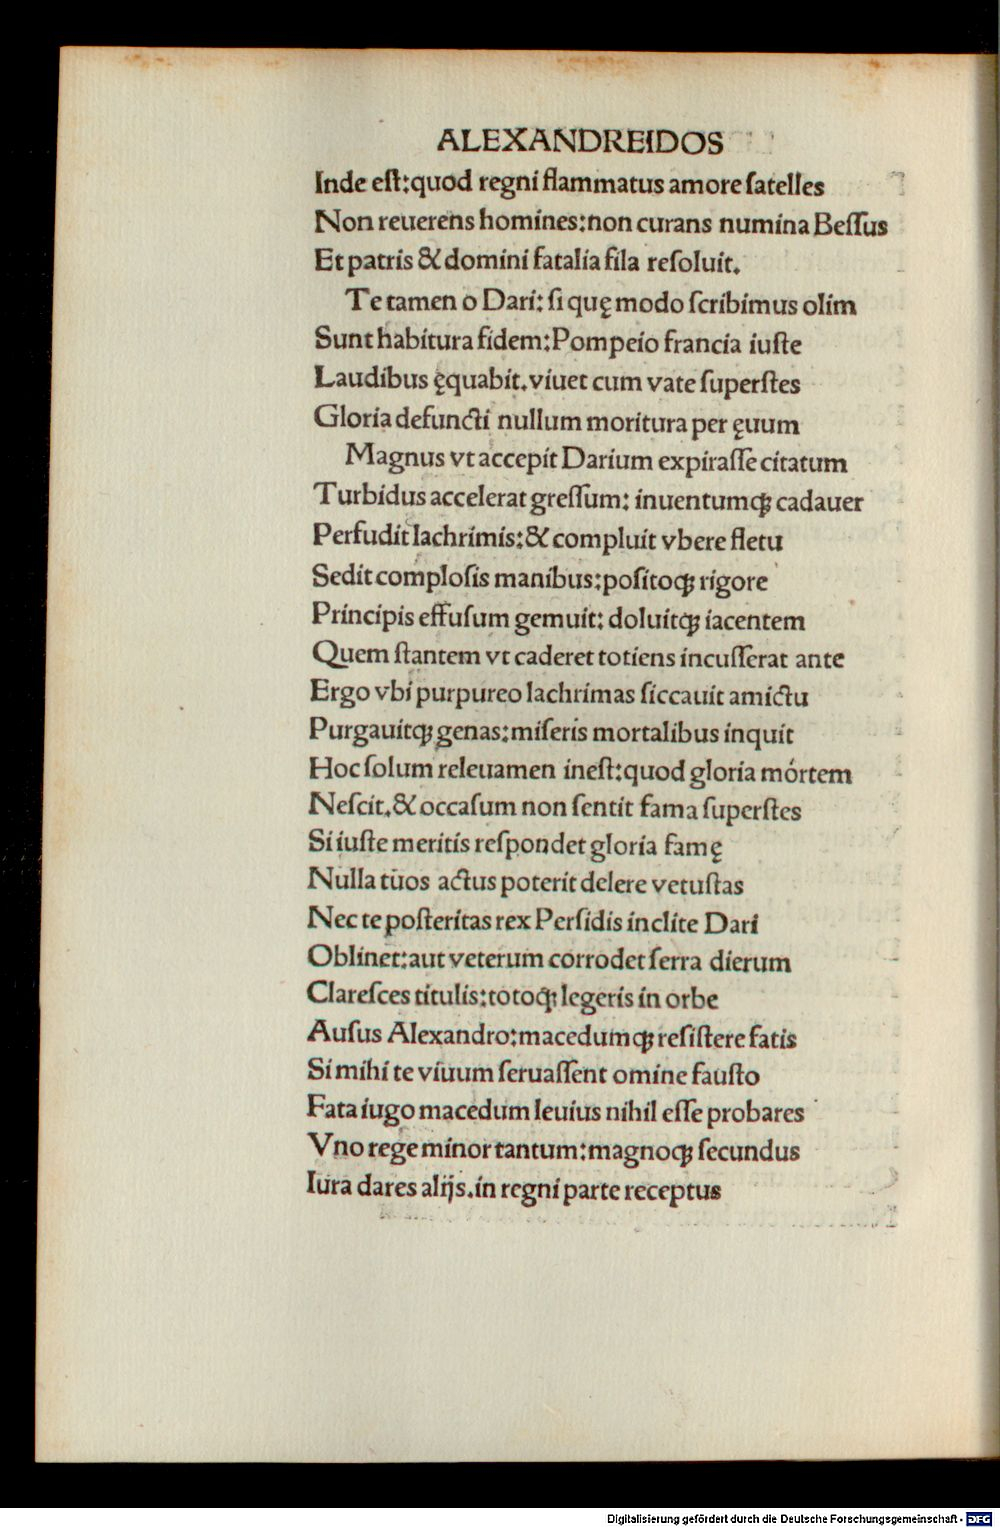 ALEXANDREIDOS
Inde eſt:quod regni flammatus amore ſatelles
Non reuerens homines:non curans numina Beſſus
Et patris & domini fatalia fila reſoluit.
Te tamen o Dari: ſi quę modo ſcribimus olim
Sunt habitura fidem:Pompeio francia iuſte
Laudibus ęquabit.viuet cum vate ſuperſtes
Gloria defuncti nullum moritura per ęuum
Magnus vt accepit Darium expiraſſe citatum
Turbidus accelerat greſſum: inuentumqꝫ cadauer
Perfudit lachrimis:& compluit vbere fletu
Sedit comploſis manibus:poſitoqꝫ rigore
Principis effuſum gemuit: doluitqꝫ iacentem
Quem ſtantem vt caderet totiens incuſſerat ante
Ergo vbi purpureo lachrimas ſiccauit amictu
Purgauitqꝫ genas:miſeris mortalibus inquit
Hoc ſolum releuamen ineſt:quod gloria mórtem
Neſcit.& occaſum non ſentit fama ſuperſtes
Si iuſte meritis reſpondet gloria famę
Nulla tuos actus poterit delere vetuſtas
Nec te poſteritas rex Perſidis inclite Dari
Oblinet:aut veterum corrodet ſerra dierum
Clareſces titulis:totoqꝫ legeris in orbe
Auſus Alexandro:macedumqꝫ reſiſtere fatis
Si mihi te viuum ſeruaſſent omine fauſto
Fata iugo macedum leuius nihil eſſe probares
Vno rege minor tantum:magnoqꝫ ſecundus
Iura dares alijs.in regni parte receptus
Digitalisierung gefördert durch die Deutsche Forschungsgemeinschaft - DFG